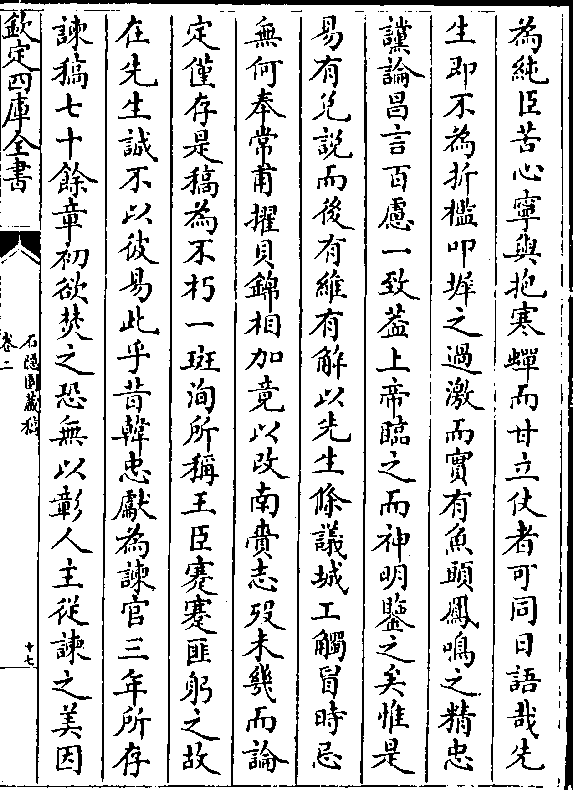 為純臣苦心寧與抱寒蟬而甘立仗者可同日語哉先
生即不為折檻叩墀之過激而實有魚頭鳳鳴之精忠
讜論昌言百慮一致葢上帝臨之而神明鑒之矣惟是
易有兌説而後有維有解以先生條議城工觸冒時忌
無何奉常甫擢貝錦相加竟以改南賫志殁未幾而論
定僅存是稿為不朽一斑洵所稱王臣蹇蹇匪躬之故
在先生誠不以彼易此乎昔韓忠獻為諫官三年所存
諫稿七十餘章初欲焚之恐無以彰人主從諫之美因
欽定四庫全書
石隱園藏稿
卷二
十七